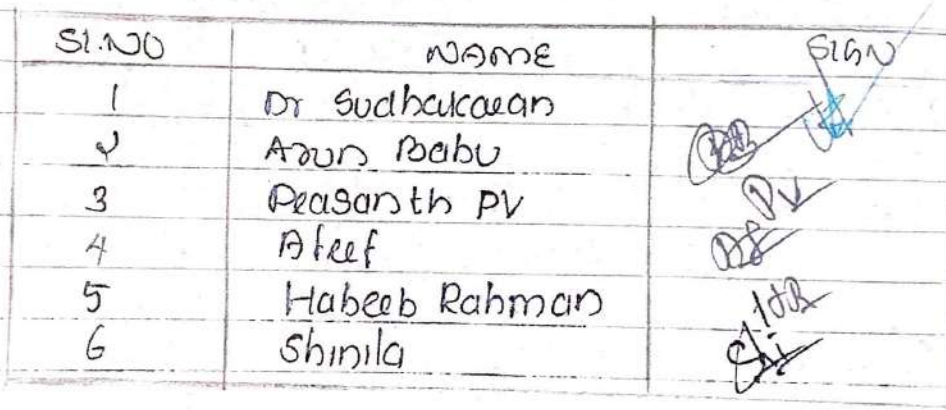 SI.NO NAME SIGN
1 Dr Sudhakaran
2 Arun Babu
3 Prasanth PV PV
4 Afeef
5 Habeeb Rahman
6 Shinila